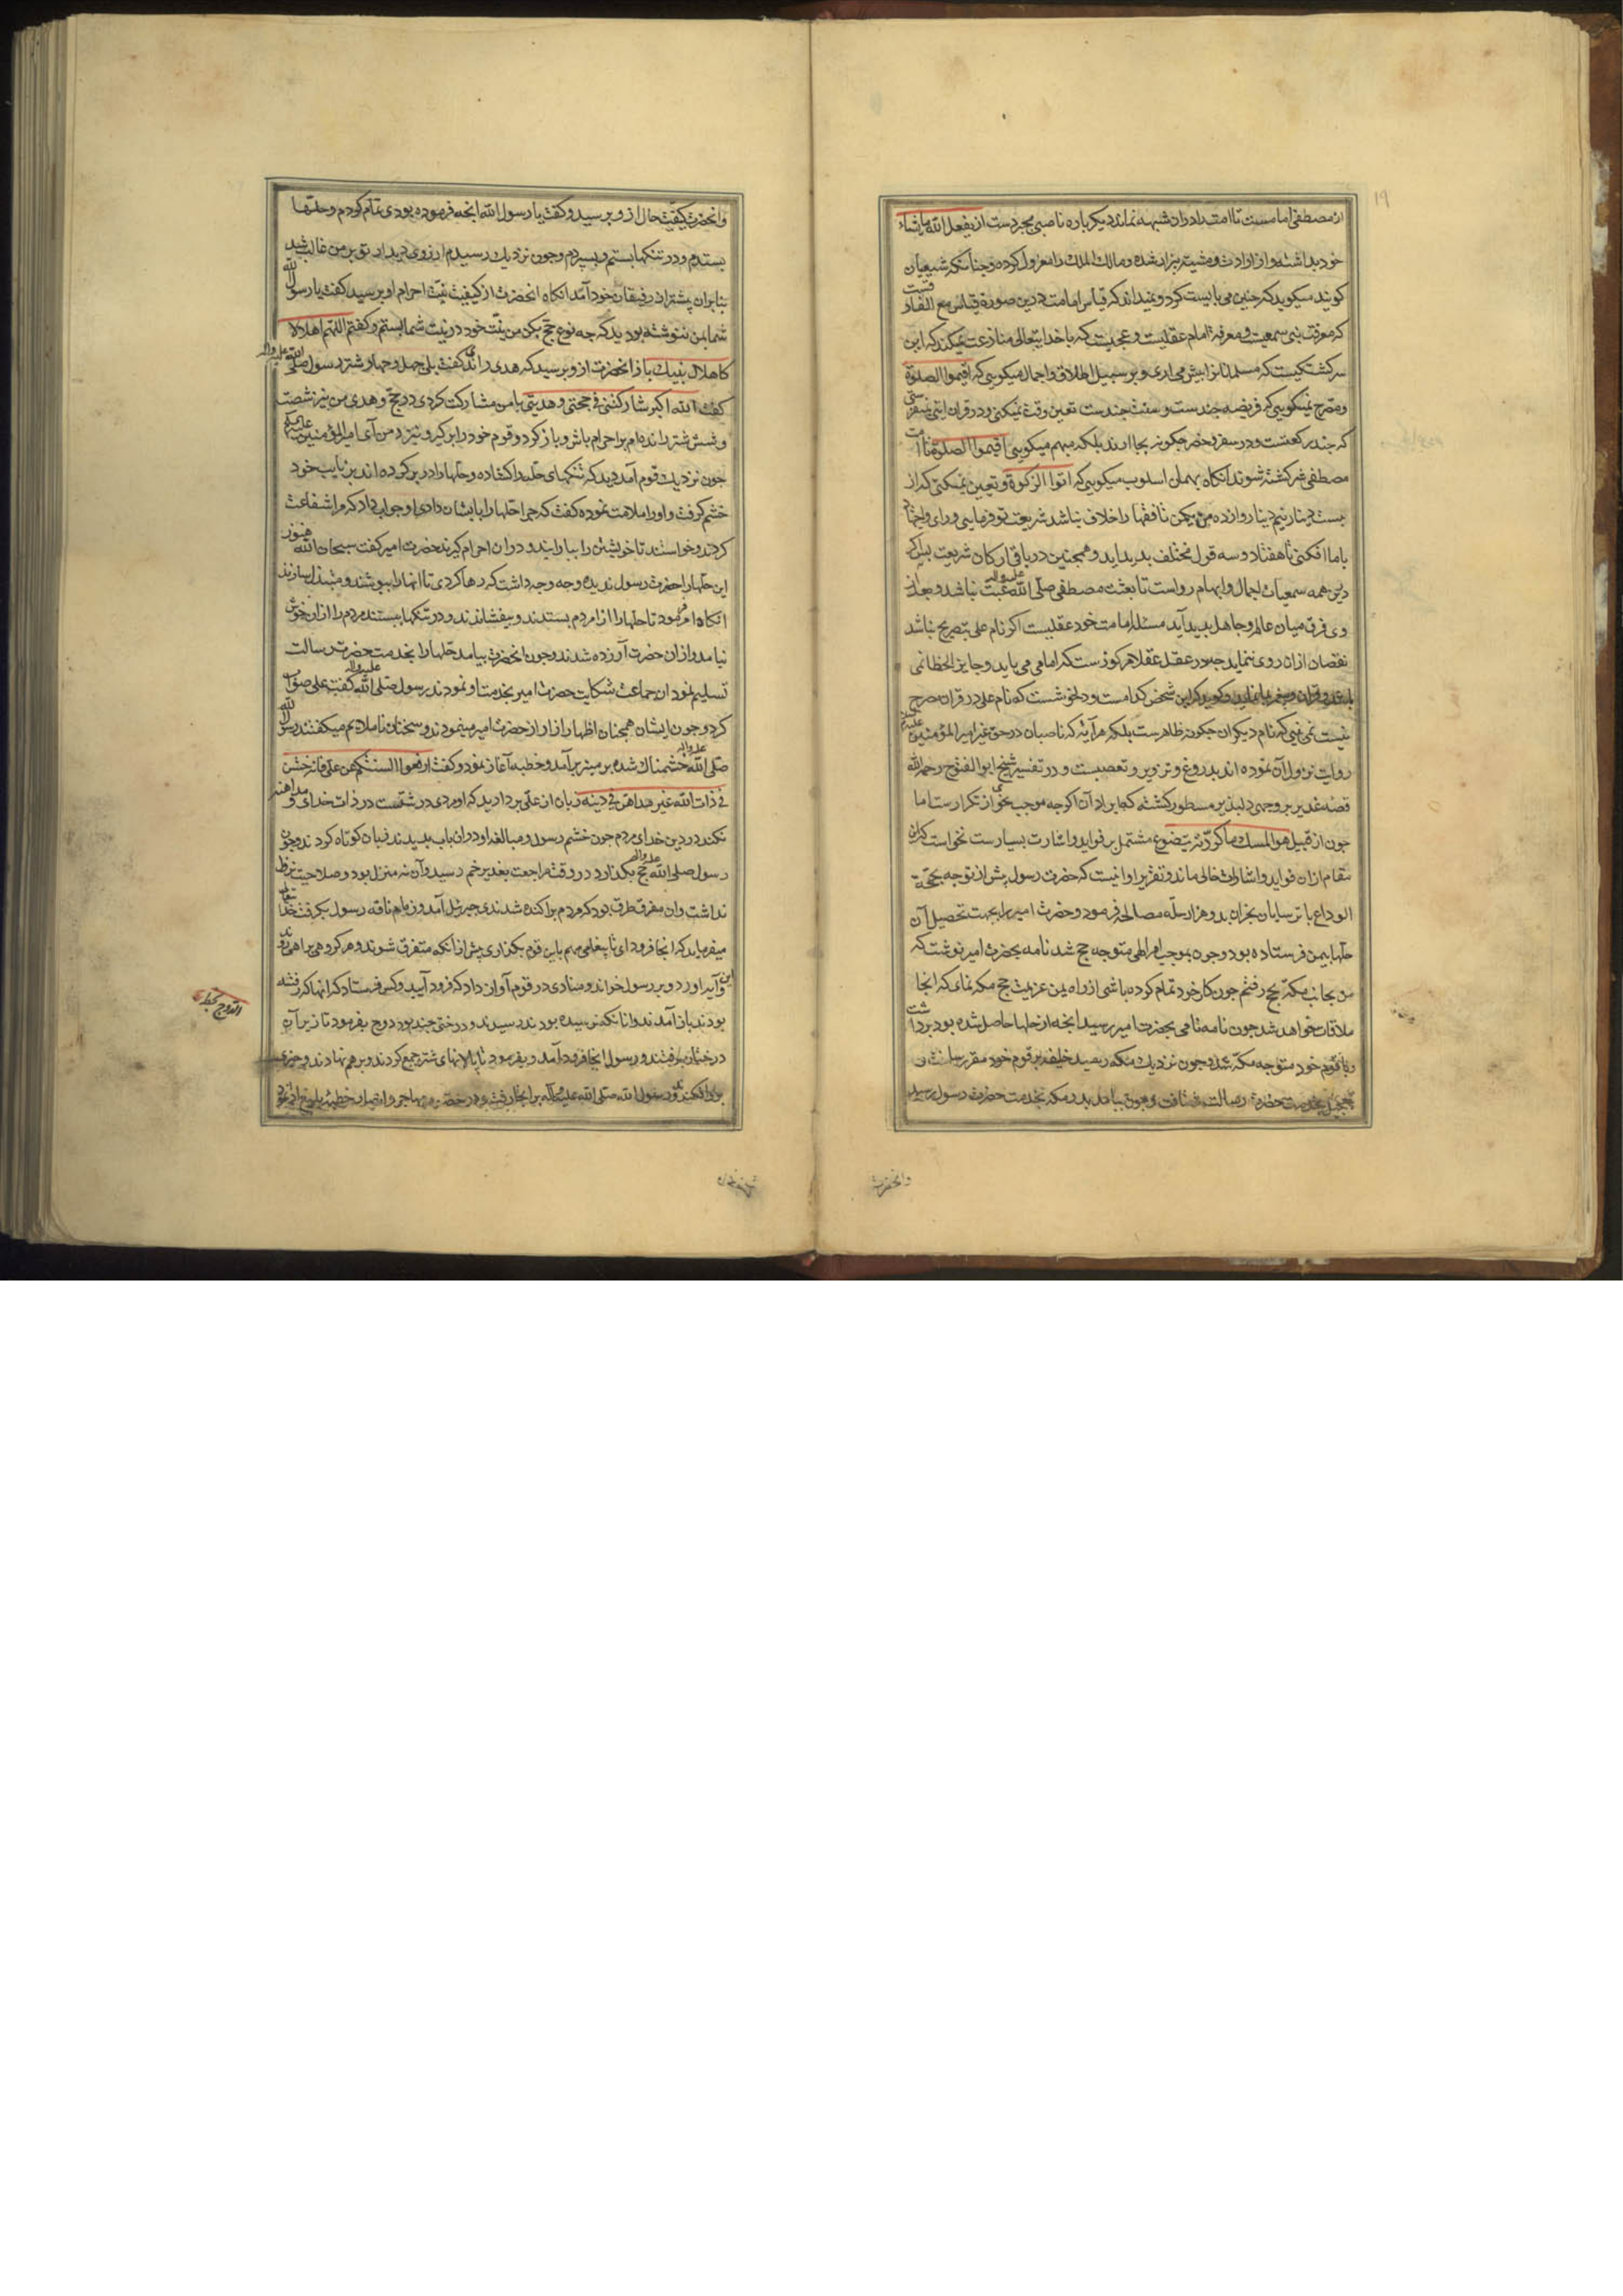 ۱۹
از مصطفی امامست تا امت را در آن شبهه نماند دیکر باره ناصبی مجبر دست از یفعل الله ما یشاء
خود بداشته و از ارادت و مشیت بیزار شده و مالک الملک را معزول کرده و چنانکه شیعیان
کویند میکوید که چنین می بایست کرد و نمیداند که قیاس امامت درین صورة قیاس مع الفارقست
که معرفت نبی سمعیست و معرفة امام عقلیست و عجبست که با خدایتعالی منازعت نمیکند که این
سرکشتکیست که مسلمانانرا پیش می اری و بر سبیل اطلاق و اجمال میکویی که اقیموا الصلوة
و مصرح نمیکویی که فریضه چندست و سنت چندست تعیین وقت نمیکنی و در قران
که چند رکعتست و در سفر و حضر چکونه بجا ارند بلکه مبهم میکویی اقیموا الصلوة تا امت
مصطفی سرکشته شوند انکاه بهمان اسلوب میکویی که اتوا الزکوة و تعیین نمیکنی که از
بیست دینار نیم دینار و از ده من یکمن تا فقها را خلاف نباشد شریعت تو فرمایی و رای و اجتهاد
باما افکنی تا هفتاد و سه قول مختلف بدید اید و همچنین در باقی ارکان شریعت پس اکر
درین همه سمعیات اجمال و ابهام رواست تا بعثت مصطفی صلی الله علیه و اله عبث نباشد و بعد از
وی فرق میان عالم و جاهل بدید آید مسئله امامت خود عقلیست اکر نام علی بتصریح نباشد
نقصان ازان روی ننماید چه در عقل عقلا مرکوزست که امامی می باید و جایز الخطا نمی
باشد و قران و پیغمبر بنماید و کوید که این شخص کدامست و دلخوشست که نام علی در قران مصرح
نیست نمی بینی که نام دیکران چکونه ظاهرست بلکه هر آیه که ناصبان در حق غیر امیرالمؤمنین علیه السلم
روایت نزول آن نموده اند بدروغ و تزویر و تعصبست و در تفسیر شیخ ابوالفتوح رحمه الله
قصه غدیر بر وجهی دلپذیر مسطور کشته که ایراد آن اکرچه موجب نحوی از تکرارست اما
چون از قبیل هو المسک ما کررته یتضوع مشتمل بر فواید و اشارت بسیارست نخواست که این
مقام ازان فواید و اشارات خالی ماند و تقریر او انیست که حضرت رسول پیش از توجه بحجة
الوداع با ترسایان نجران بدو هزار حله مصالحه فرمود و حضرت امیر را بجهت تحصیل آن
حلها بیمن فرستاده بود و چون بموجب امر الهی متوجه حج شد نامه بحضرت امیر نوشت که
من بجانب مکه بحج رفتم چون کار خود تمام کرده باشی از راه یمن عزیمت حج مکه نمای که انجا
ملاقات خواهد شد چون نامه نامی بحضرت امیر رسید انچه از حلها حاصل شده بود برداشت
و با قوم خود متوجه مکه شد و چون نزدیک مکه رسید خلیفه بر قوم خود مقرر ساخت و
بتعجیل بخدمت حضرة رسالت شتافت و چون بیامد بدر مکه بخدمت حضرت رسول رسید
وانحضرت
وانحضرت کیفیت حال ازو پرسید و کفت یا رسول الله انچه فرموده بودی تمام کردم و حلها
بستدم و در تنکها بستم و بسپردم و چون نزدیک رسیدم ارزوی دیدار تو بر من غالب شد
بنابران پیشتر از رفیقان خود آمد انکاه انحضرت از کیفیت نیت احرام او پرسید کفت یا رسول الله
شما بمن ننوشته بودید که چه نوع حج بکن من نیت خود در نیت شما بستم و کفتم اللهم اهلالا
کاهلال نبیک باز انحضرت ازو پرسید که هدی رانده کفت بلی چهل و چهار شتر رسول صلی الله علیه و اله
کفت الله اکبر شارکتنی فی حجتی و هدیتی با من مشارکت کردی در حج و هدی من نیز شصت
و شش شتر رانده ام بر احرام باش و باز کرد و قوم خود را بر کیر و نیزد من آی امیرالمؤمنین علیه السلم
چون نزدیک قوم آمد دید که تنکهای حله را کشاده و حلها را در بر کرده اند بر نایب خود
خشم کرفت و او را ملامت نموده کفت که چرا حلها را بایشان دادی او جواب داد که مرا شفاعت
کردند و خواستند تا خویشتن را بیارایند و دران احرام کیرند حضرت امیر کفت سبحان الله هنوز
این حلها را حضرت رسول ندیده چه وجه داشت که رها کردی تا انها را بپوشند و مبتذل سازند
انکاه امر فرمود تا حلها را از مردم بستدند و بیفشاندند و در تنکها ببستند مردم را ازان خوش
نیامد و ازان حضرت آزرده شدند و چون انحضرت بیامد حلها را بخدمت حضرت رسالت
تسلیم نمود ان جماعت شکایت حضرت امیر بخدمت او نمودند رسول صلی الله علیه و اله کفت علی صواب
کرد و چون ایشان همچنان اظهار ازار از حضرت امیر مینمودند و سخنان ناملایم میکفتند رسول الله
صلی الله علیه و اله خشمناک شده بر منبر برآمد و خطبه آغاز نمود و کفت ارفعوا السنتکم عن علی فانه خشن
فی ذات الله غیر مداهن فی دینه زبان از علی بردارید که او مردی درشتست در ذات خدای و مداهنه
نکند در دین خدای مردم چون خشم رسول و مبالغه او دران باب بدیدند زبان کوتاه کردند و چون
رسول صلی الله علیه و اله حج بکذارد در وقت مراجعت بغدیر خم رسید و آن نه منزل بود و صلاحیت نزول
نداشت و ان مفرق طرق بود که مردم پراکنده شدندی جبرئیل آمد و زمام ناقه رسول بکرفت خدا تعالی
میفرماید که انجا فرود ای تا پیغامی مهم باین قوم بکذاری پیش از انکه متفرق شوند و هر کروهی براهی روند
و این آیه اورد و بر رسول خواند و منادی در قوم آواز داد که فرود آیید و کس فرستاد که انها که رفته
بودند باز آمدند و انانکه نرسیده بودند رسیدند و درختی چند بود دوح بفرمود تا زیر آن
درختان برفتند و رسول انجا فرود آمد و بفرمود تا پالانهای شتر جمع کردند و بر هم نهادند و چیزی
بران افکندند و رسول الله صلی الله علیه و اله بر انجا رفت و در حضور مهاجر و انصار خطبه بلیغ